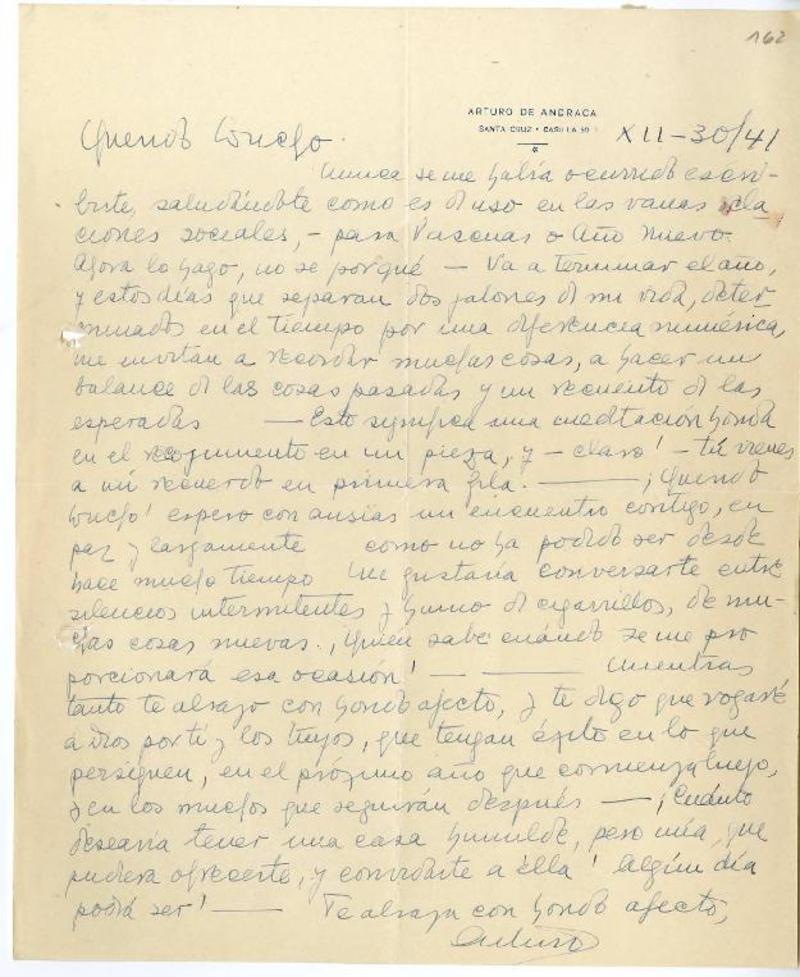 162
ARTURO DE ANDRACA
SANTA CRUZ • CASILLA
XII-30/41
Querido Loucho.
Nunca se me había ocurrido escri-
birte, saludándote como es de uso en las vanas rela
ciones sociales, - para Pascuas o Año Nuevo.
Ahora lo hago, no se porqué — Va a terminar el año,
y estos días que separan dos jalones de mi vida, deter-
minados en el tiempo por una diferencia numérica,
me invitan a recordar muchas cosas, a hacer un
balance de las cosas pasadas y un recuento de las
esperadas — Esto significa una meditación honda
en el recogimiento en mi pieza, y - claro! - tú vienes
a mi recuerdo en primera fila. — ¡Querido
Loucho! espero con ansias un encuentro contigo, en
paz y largamente como no ha podido ser desde
hace mucho tiempo Me gustaría conversarte entre
silencios intermitentes y humo de cigarrillos, de mu-
chas cosas nuevas. ¡Quién sabe cuándo se me pro
porcionará esa ocasión! — — Mientras
tanto te abrazo con hondo afecto, y te digo que rogaré
a Dios por ti y los tuyos, que tengan éxito en lo que
persiguen, en el próximo año que comienza luego,
y en los muchos que seguirán después — ¡Cuánto
desearía tener una casa humilde, pero mía, que
pudiera ofrecerte, y convidarte a ella! Algún día
podrá ser! — Te abraza con hondo afecto,
Arturo